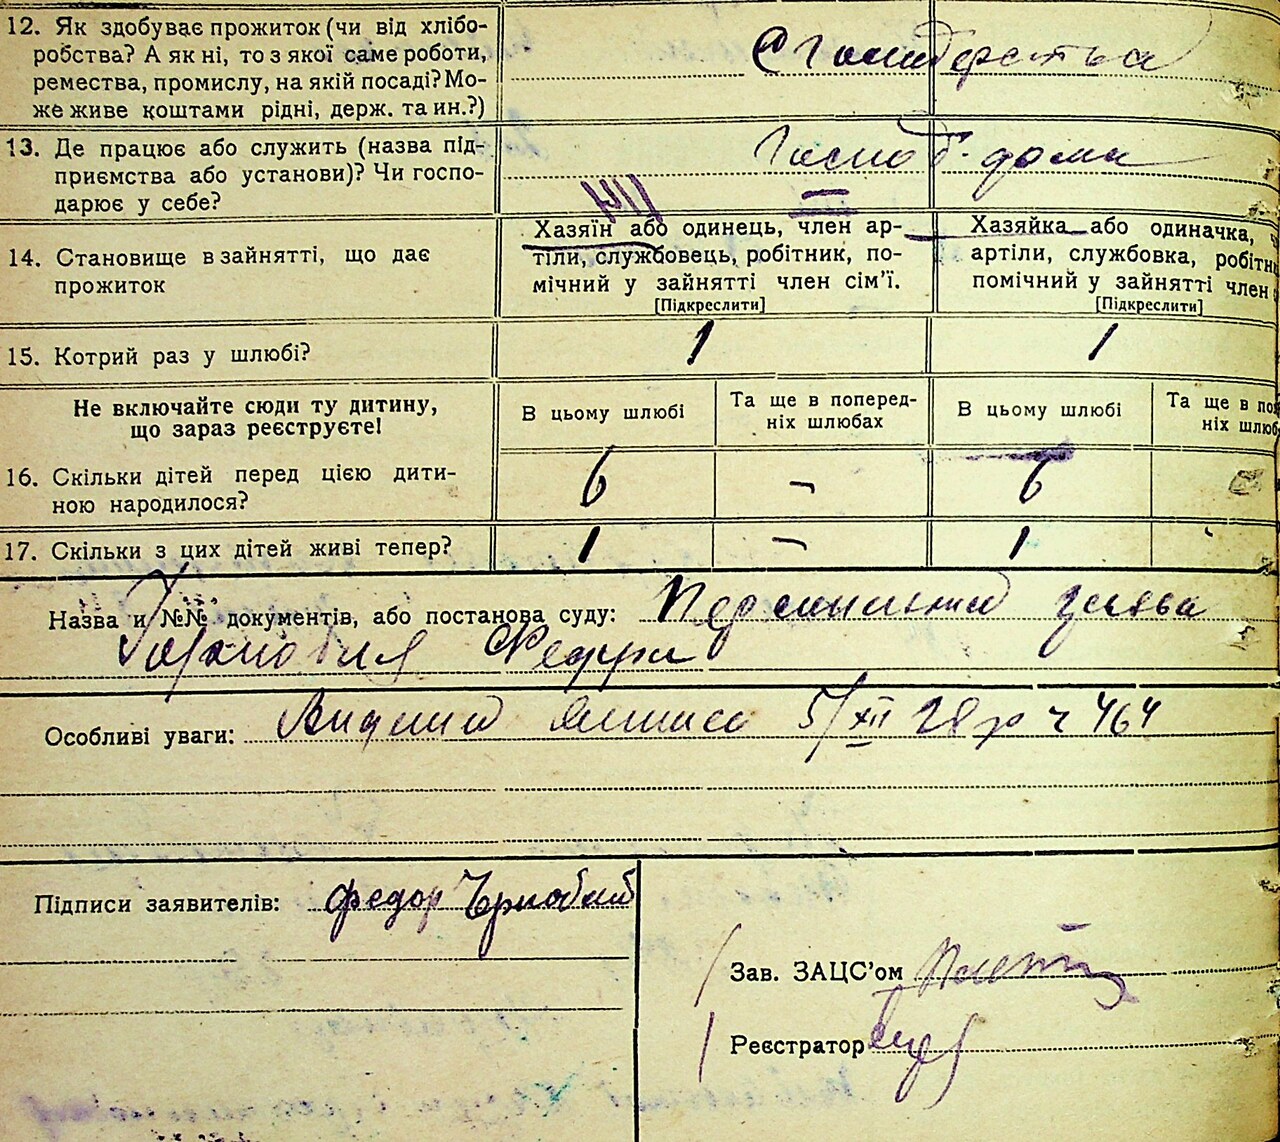 12. Як здобуває прожиток (чи від хлібо-
робства? А як ні, то з якої саме роботи,
ремества, промислу, на якій посаді? Мо-
же живе коштами рідні, держ. та ин.?)
13. Де працює або служить (назва під-
приємства або установи)? Чи госпо-
дарює у себе?
Господ. дома
14. Становище в зайнятті, що дає
прожиток
Хазяїн або одинець, член ар-
тіли, службовець, робітник, по-
мічний у зайнятті член сім'ї.
[Підкреслити]
Хазяйка або одиначка,
артіли, службовка, робітн
помічний у зайнятті член
[Підкреслити]
15. Котрий раз у шлюбі? 1 1
Не включайте сюди ту дитину,
що зараз реєструєте!
В цьому шлюбі
Та ще в поперед-
ніх шлюбах
В цьому шлюбі
Та ще в поп
ніх шлюб
16. Скільки дітей перед цією дити-
ною народилося?
6 – 6
17. Скільки з цих дітей живі тепер? 1 – 1
Назва и №№ документів, або постанова суду: заява
Особливі уваги: 5/XII 28 р ч 464
Підписи заявителів: федор
Зав. ЗАЦС'ом
Реєстратор